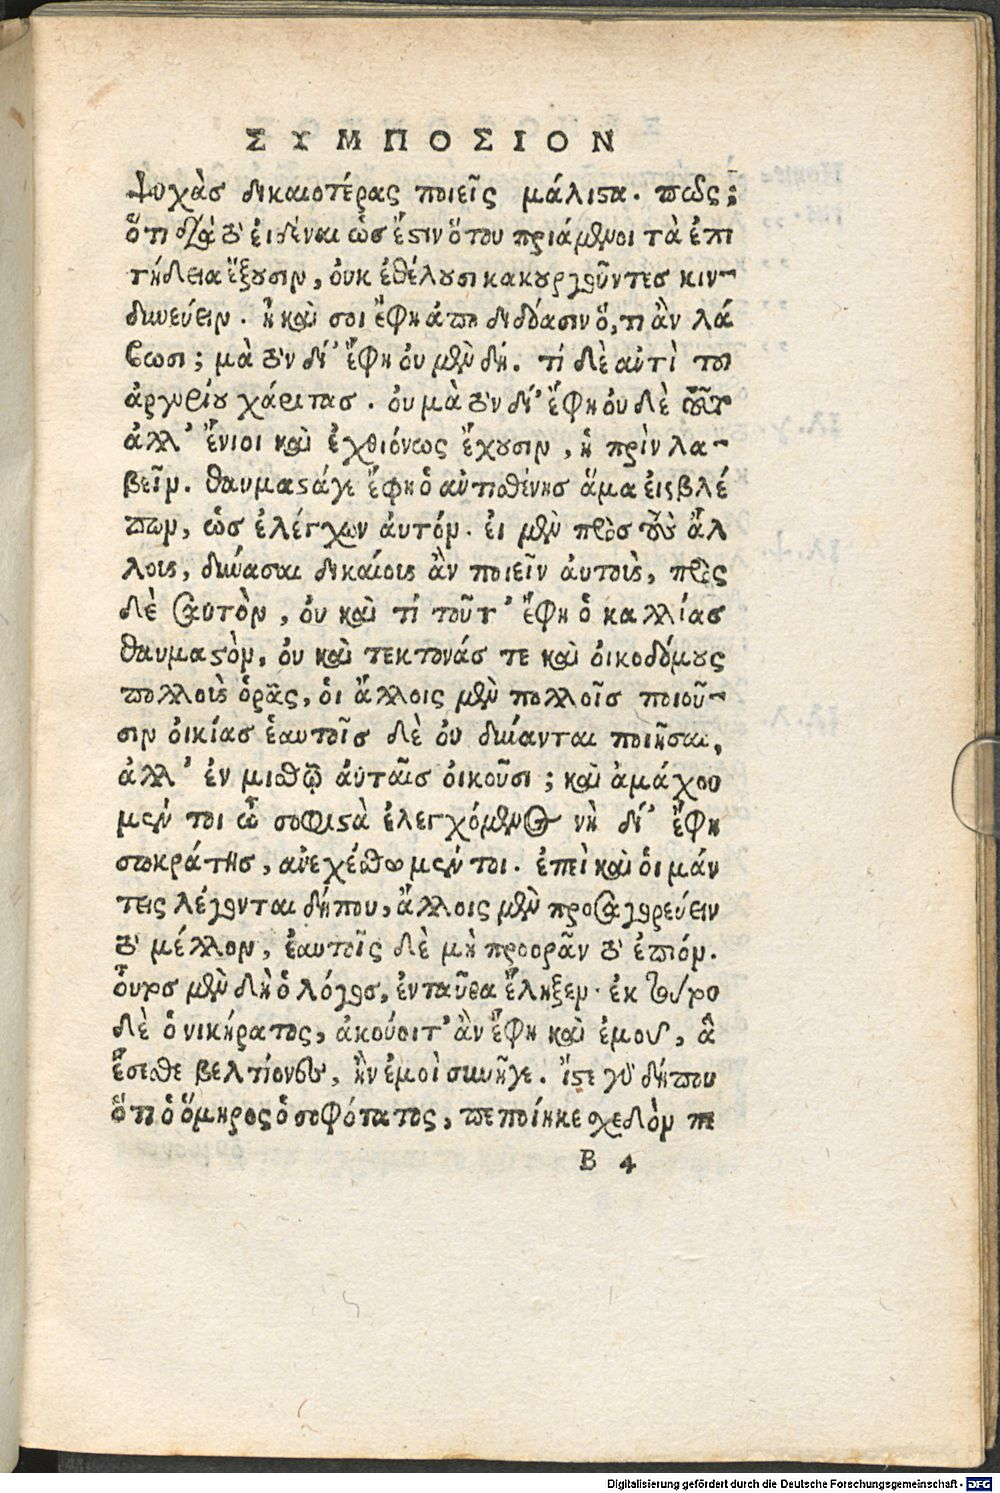 ΣΥΜΠΟΣΙΟΝ
ψυχὰς δικαιοτέρας ποιεῖς μάλιστα. πῶς;
ὅτι διὰ τὸ εἰδέναι ὡς ἔστιν ὅτου πριάμενοι τὰ ἐπι
τήδεια ἕξουσιν, ὀυκ ἐθέλουσι κακουργοῦντες κιν-
δυνεύειν. ἦ καὶ σοι ἔφη ἀποδιδόασιν ὅ,τι ἂν λά
βωσι; μὰ τὸν δί' ἔφη ὀυ μὲν δή. τί δὲ αὐτὶ τοῦ
ἀργυρίου χάριτας. ὀυ μὰ τὸν δί' ἔφη ὀυδὲ τοῦτ
ἀλλ' ἔνιοι καὶ ἐχθιόνως ἔχουσιν, ἢ πρὶν λα-
βεῖν. θαυμαστά γε ἔφη ὁ αὐτισθένης ἅμα ἐισβλέ
πων, ὡς ἐλέγχων ἀυτόν. ἐι μὲν πρὸς τοὺς ἄλ
λους, δύνασαι δικαίους ἂν ποιεῖν ἀυτοὺς, πρὸς
δὲ σαυτὸν, ὀυ καὶ τί τοῦτ' ἔφη ὁ καλλίας
θαυμαστὸν, ὀυ καὶ τεκτονάς τε καὶ ὀικοδόμους
πολλοὺς ὁρᾷς, ὁι ἄλλοις μὲν πολλοῖς ποιοῦ-
σιν ὀικίας ἑαυτοῖς δὲ ὀυ δύνανται ποιῆσαι,
ἀλλ' ἐν μισθῷ ἀυταῖς ὀικοῦσι; καὶ ἀμάχου
μέν τοι ὦ σοφιστὰ ἐλεγχόμενος νὴ δί' ἔφη
σωκράτης, ἀνεχέσθω μέν τοι. ἐπεὶ καὶ ὁι μάν
τεις λέγονται δήπου, ἄλλοις μὲν προαγορεύειν
τὸ μέλλον, ἑαυτοῖς δὲ μὴ προορᾶν τὸ ἐπιόν.
οὗτος μὲν δὴ ὁ λόγος, ἐνταῦθα ἔληξεν· ἐκ τούτου
δὲ ὁ νικήρατος, ἀκούοιτ' ἂν ἔφη καὶ ἐμοῦ, ἃ
ἔσεσθε βελτίονες, ἢν ἐμοὶ συνῆγε. ἴστε γὸ δήπου
ὅτι ὁ ὅμηρος ὁ σοφότατος, πεποίηκε σχεδὸν πε
B 4
Digitalisierung gefördert durch die Deutsche Forschungsgemeinschaft - DFG